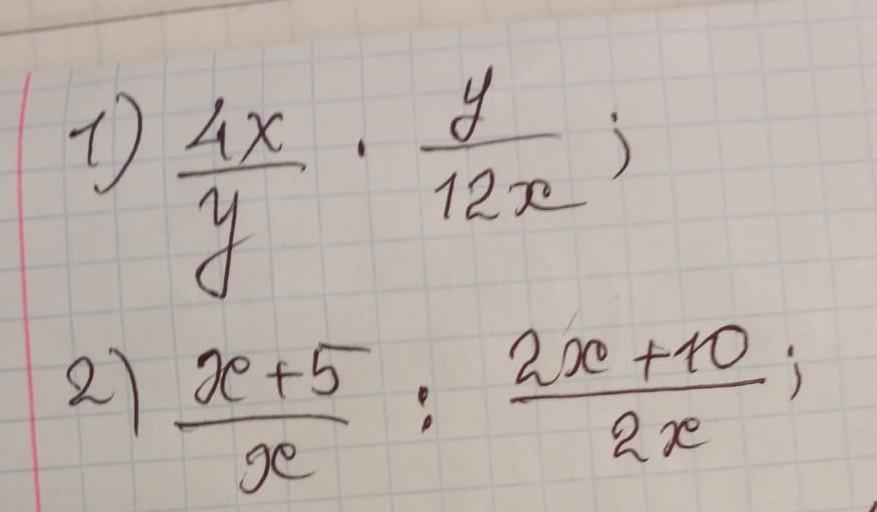 1) 4x/y · y/12x ;
2) x+5/x : 2x+10/2x ;